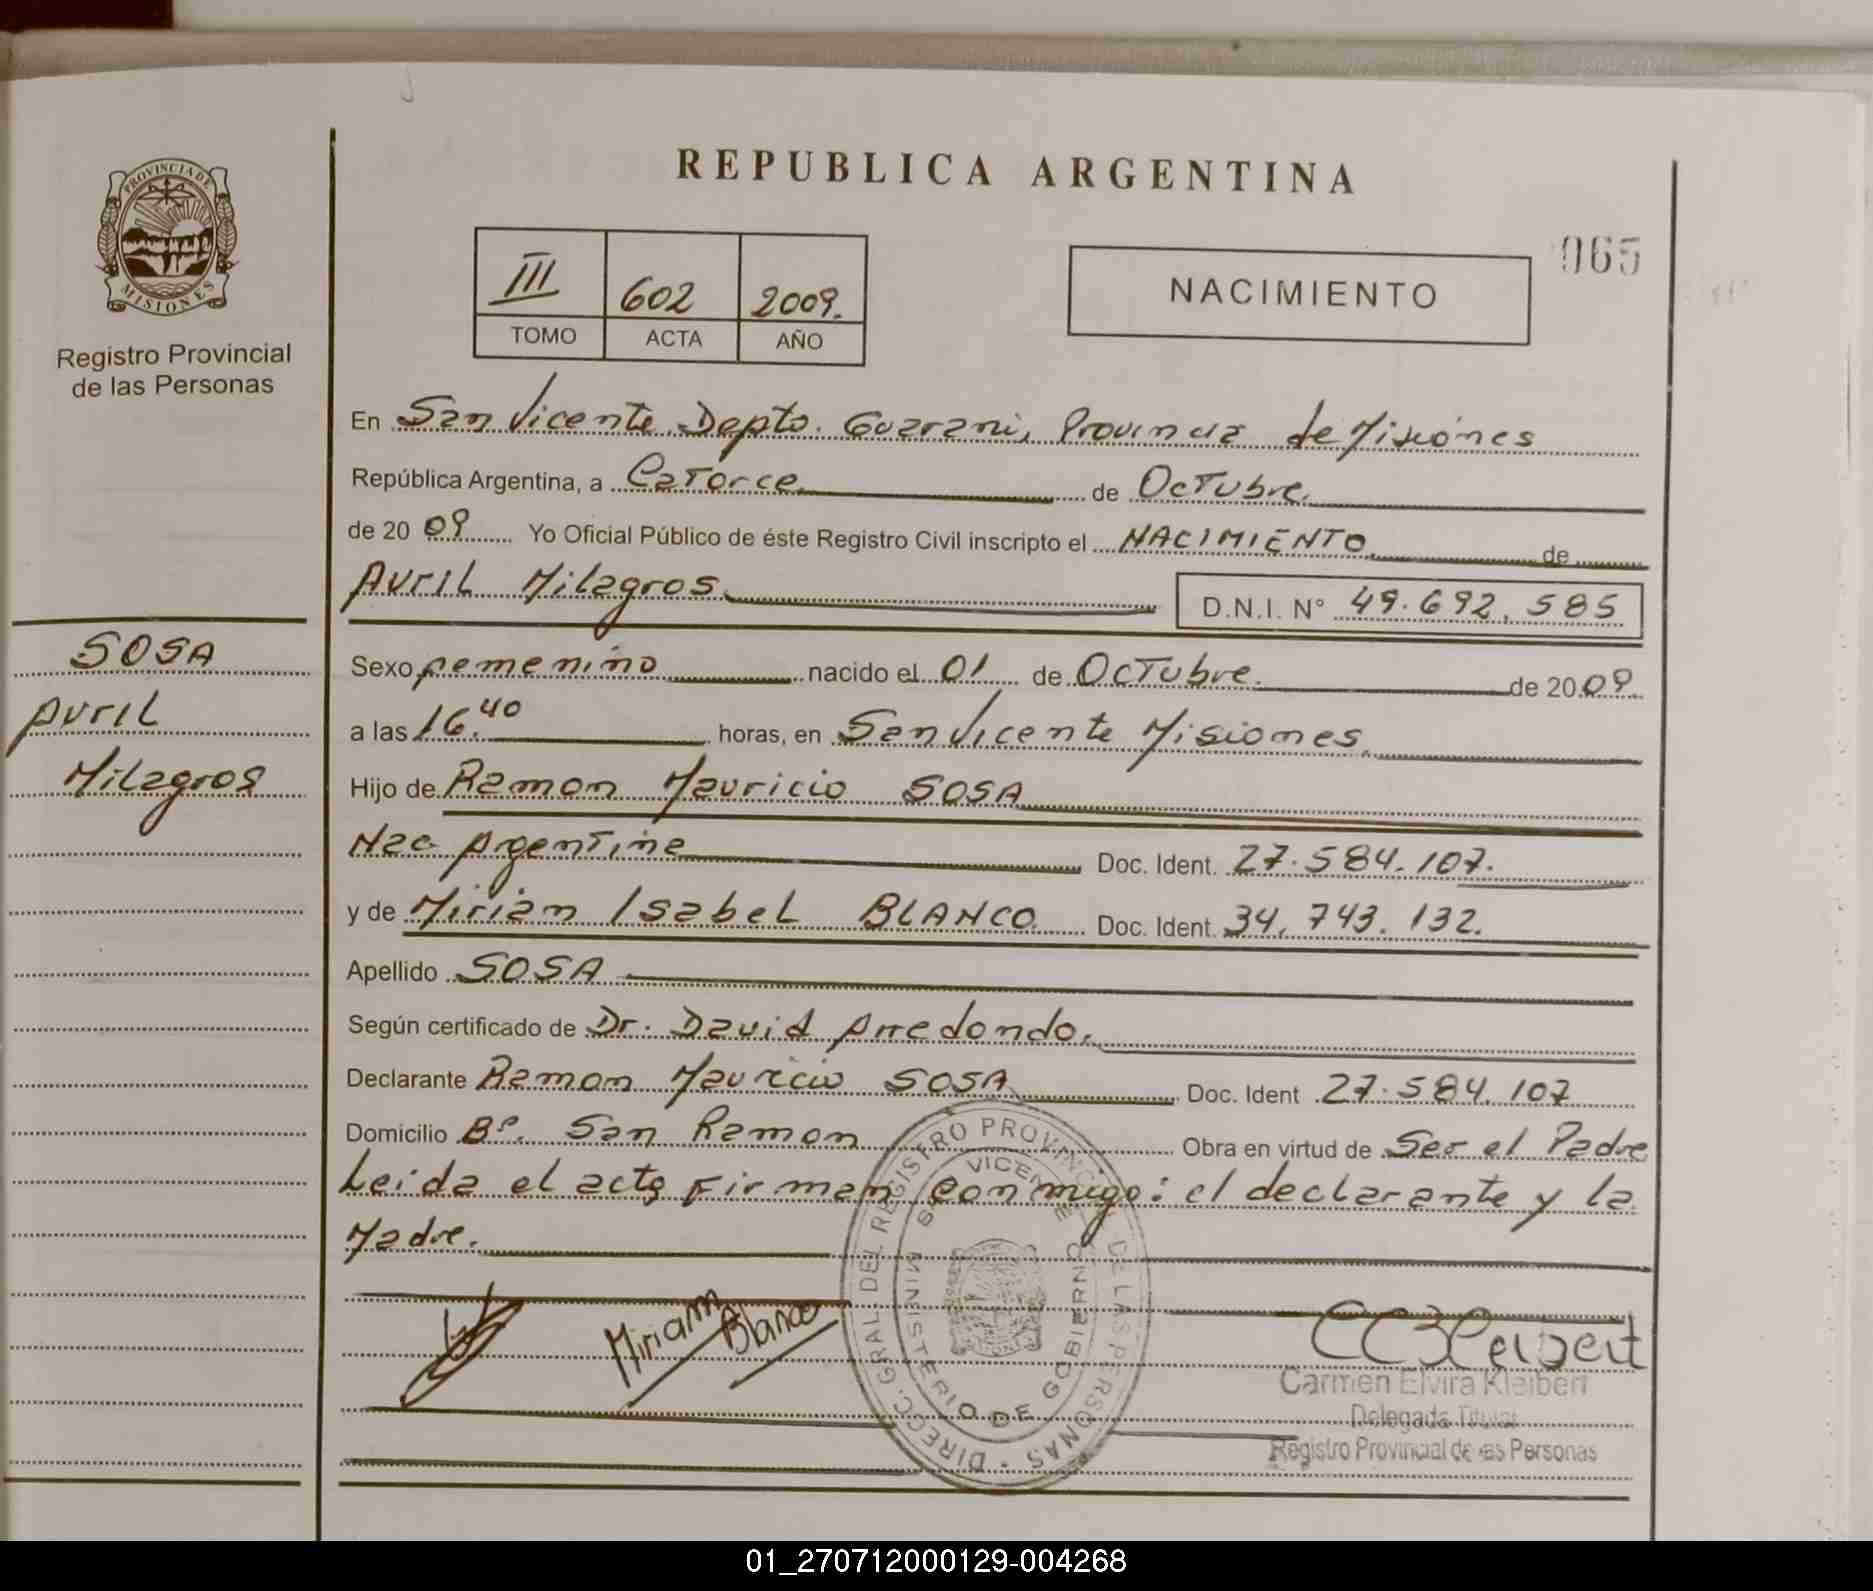 PROVINCIA DE
MISIONES
Registro Provincial
de las Personas
SOSA
Avril
Milagros
REPUBLICA ARGENTINA
065
III 602 2009.
TOMO ACTA AÑO
NACIMIENTO
En San Vicente, Depto. Guarani, Provincia de Misiones
República Argentina, a Catorce de Octubre.
de 2009 Yo Oficial Público de éste Registro Civil inscripto el NACIMIENTO de
Avril Milagros. D.N.I. N° 49.692.585
Sexo Femenino nacido el 01 de Octubre. de 2009.
a las 16.40 horas, en San Vicente Misiones.
Hijo de Ramon Mauricio SOSA
Nac. Argentina Doc. Ident. 27.584.107.
y de Mirian Isabel BLANCO. Doc. Ident. 34.743.132.
Apellido SOSA
Según certificado de Dr. David Arredondo.
Declarante Ramon Mauricio SOSA Doc. Ident 27.584.107
Domicilio Bº. San Ramon Obra en virtud de Ser el Padre
Leida el acta Firman conmigo: el declarante y la
Madre.
Miriam Blanco
DIRECC. GRAL. DEL REGISTRO PROVINCIAL DE LAS PERSONAS
SAN VICENTE
MINISTERIO DE GOBIERNO
CCKleibert
Carmen Elvira Kleibert
Delegada Titular
Registro Provincial de las Personas
01_270712000129-004268